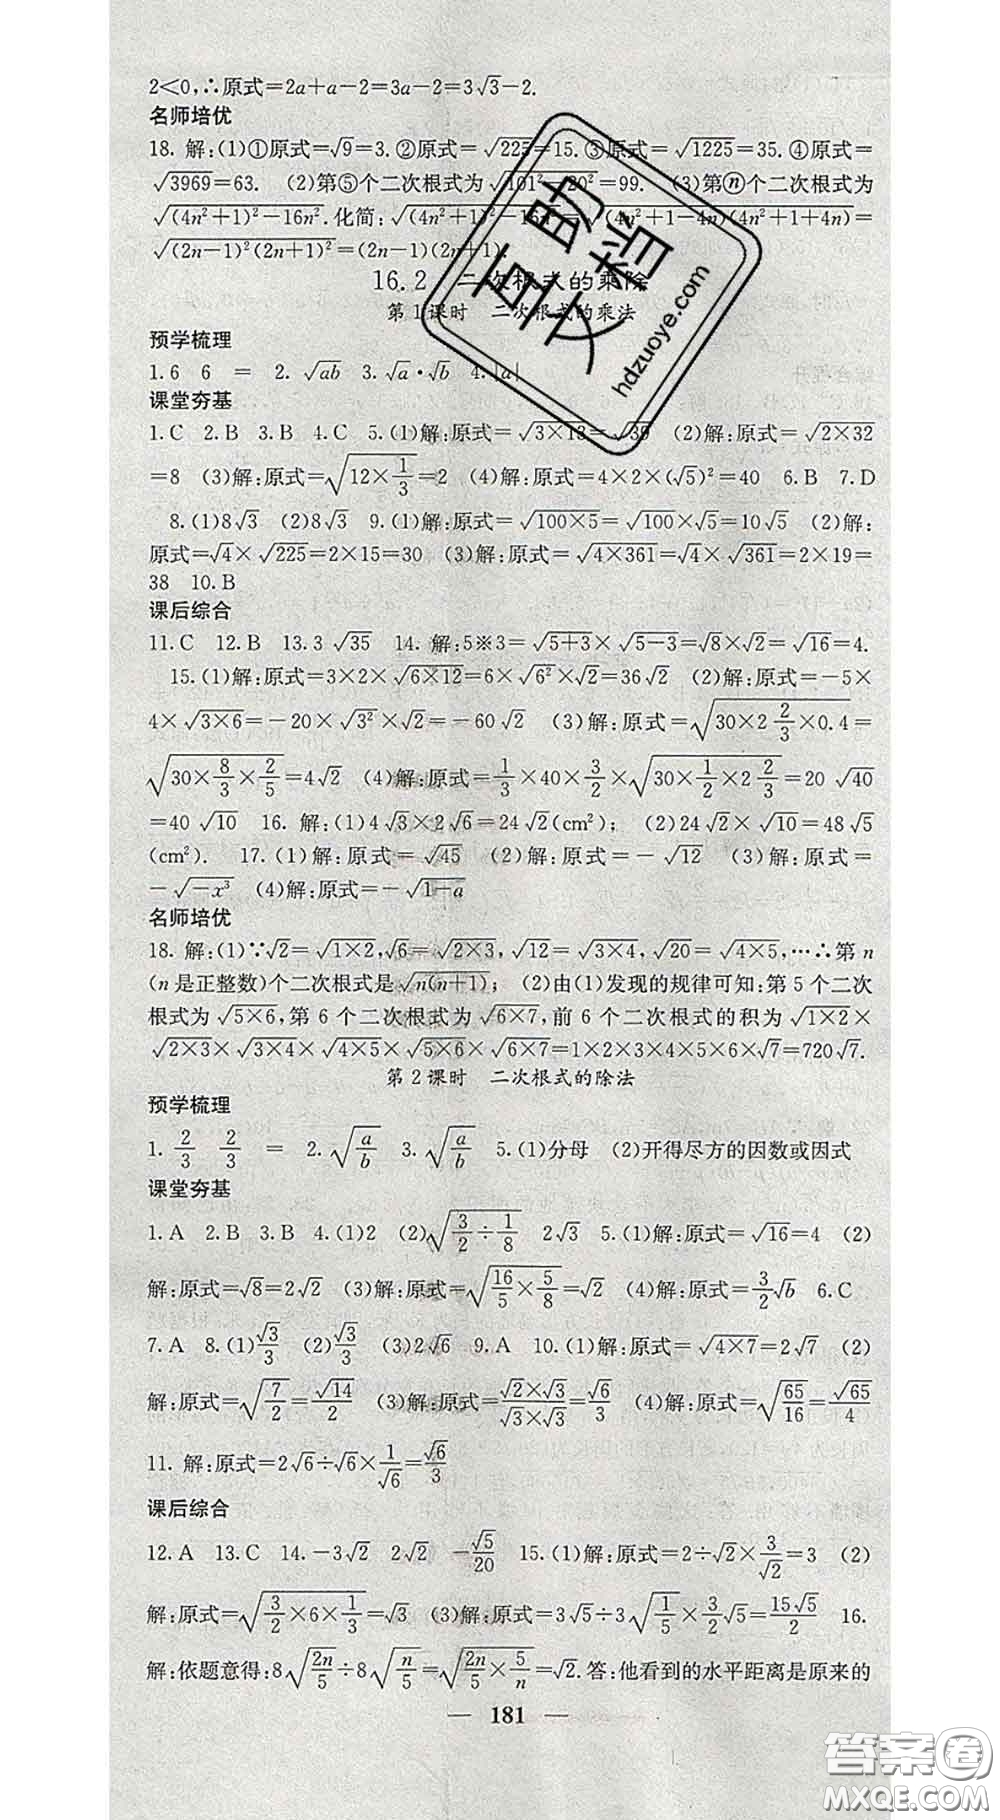 2<0,∴原式=2a+a-2=3a-2=3√3-2.
名师培优
18. 解:(1)①原式=√9=3. ②原式=√225=15. ③原式=√1225=35. ④原式=
√3969=63. (2)第⑤个二次根式为√(101²-20²)=99. (3)第ⓝ个二次根式为
√((4n²+1)²-16n²). 化简:√((4n²+1)²-16n²)=√((4n²+1-4n)(4n²+1+4n))=
√((2n-1)²(2n+1)²)=(2n-1)(2n+1)
16.2 二次根式的乘除
第1课时 二次根式的乘法
预学梳理
1.6 6 = 2.√ab 3.√a·√b 4.|a|
课堂夯基
1.C 2.B 3.B 4.C 5.(1)解:原式=√(3×13)=√39 (2)解:原式=√(2×32)
=8 (3)解:原式=√(12×1/3)=2 (4)解:原式=4×2×(√5)²=40 6.B 7.D
8.(1)8√3 (2)8√3 9.(1)解:原式=√(100×5)=√100×√5=10√5 (2)解:
原式=√4×√225=2×15=30 (3)解:原式=√(4×361)=√4×√361=2×19=
38 10.B
课后综合
11.C 12.B 13.3√35 14. 解:5※3=√(5+3)×√(5-3)=√8×√2=√16=4.
15.(1)解:原式=3×2×√(6×12)=6×√6²×√2=36√2 (2)解:原式=-5×
4×√(3×6)=-20×√3²×√2=-60√2 (3)解:原式=√(30×2 2/3×0.4)=
√(30×8/3×2/5)=4√2 (4)解:原式=1/3×40×3/2×√(30×1/2×2 2/3)=20√40
=40√10 16. 解:(1)4√3×2√6=24√2(cm²); (2)24√2×√10=48√5
(cm²). 17.(1)解:原式=√45 (2)解:原式=-√12 (3)解:原式=
-√(-x³) (4)解:原式=-√(1-a)
名师培优
18. 解:(1)∵√2=√(1×2),√6=√(2×3),√12=√(3×4),√20=√(4×5),…∴第n
(n是正整数)个二次根式是√(n(n+1)); (2)由(1)发现的规律可知:第5个二次
根式为√(5×6),第6个二次根式为√(6×7),前6个二次根式的积为√(1×2)×
√(2×3)×√(3×4)×√(4×5)×√(5×6)×√(6×7)=1×2×3×4×5×6×√7=720√7.
第2课时 二次根式的除法
预学梳理
1. 2/3 2/3 = 2.√(a/b) 3.√(a/b) 5.(1)分母 (2)开得尽方的因数或因式
课堂夯基
1.A 2.B 3.B 4.(1)2 (2)√(3/2÷1/8) 2√3 5.(1)解:原式=√16=4 (2)
解:原式=√8=2√2 (3)解:原式=√(16/5×5/8)=√2 (4)解:原式=3/2√b 6.C
7.A 8.(1)√3/3 (2)√3/3 (3)2√6 9.A 10.(1)解:原式=√(4×7)=2√7 (2)
解:原式=√(7/2)=√14/2 (3)解:原式=(√2×√3)/(√3×√3)=√6/3 (4)解:原式=√(65/16)=√65/4
11. 解:原式=2√6÷√6×1/√6=√6/3
课后综合
12.A 13.C 14.-3√2 2√2 -√5/20 15.(1)解:原式=2÷√2×3/√2=3 (2)
解:原式=√(3/2×6×1/3)=√3 (3)解:原式=3√5÷3√(1/5)×3/2√5=15√5/2 16.
解:依题意得:8√(2n/5)÷8√(n/5)=√(2n/5×5/n)=√2. 答:他看到的水平距离是原来的
— 181 —
互助文档
hdzuoye.com
答案圈
MXQE.COM